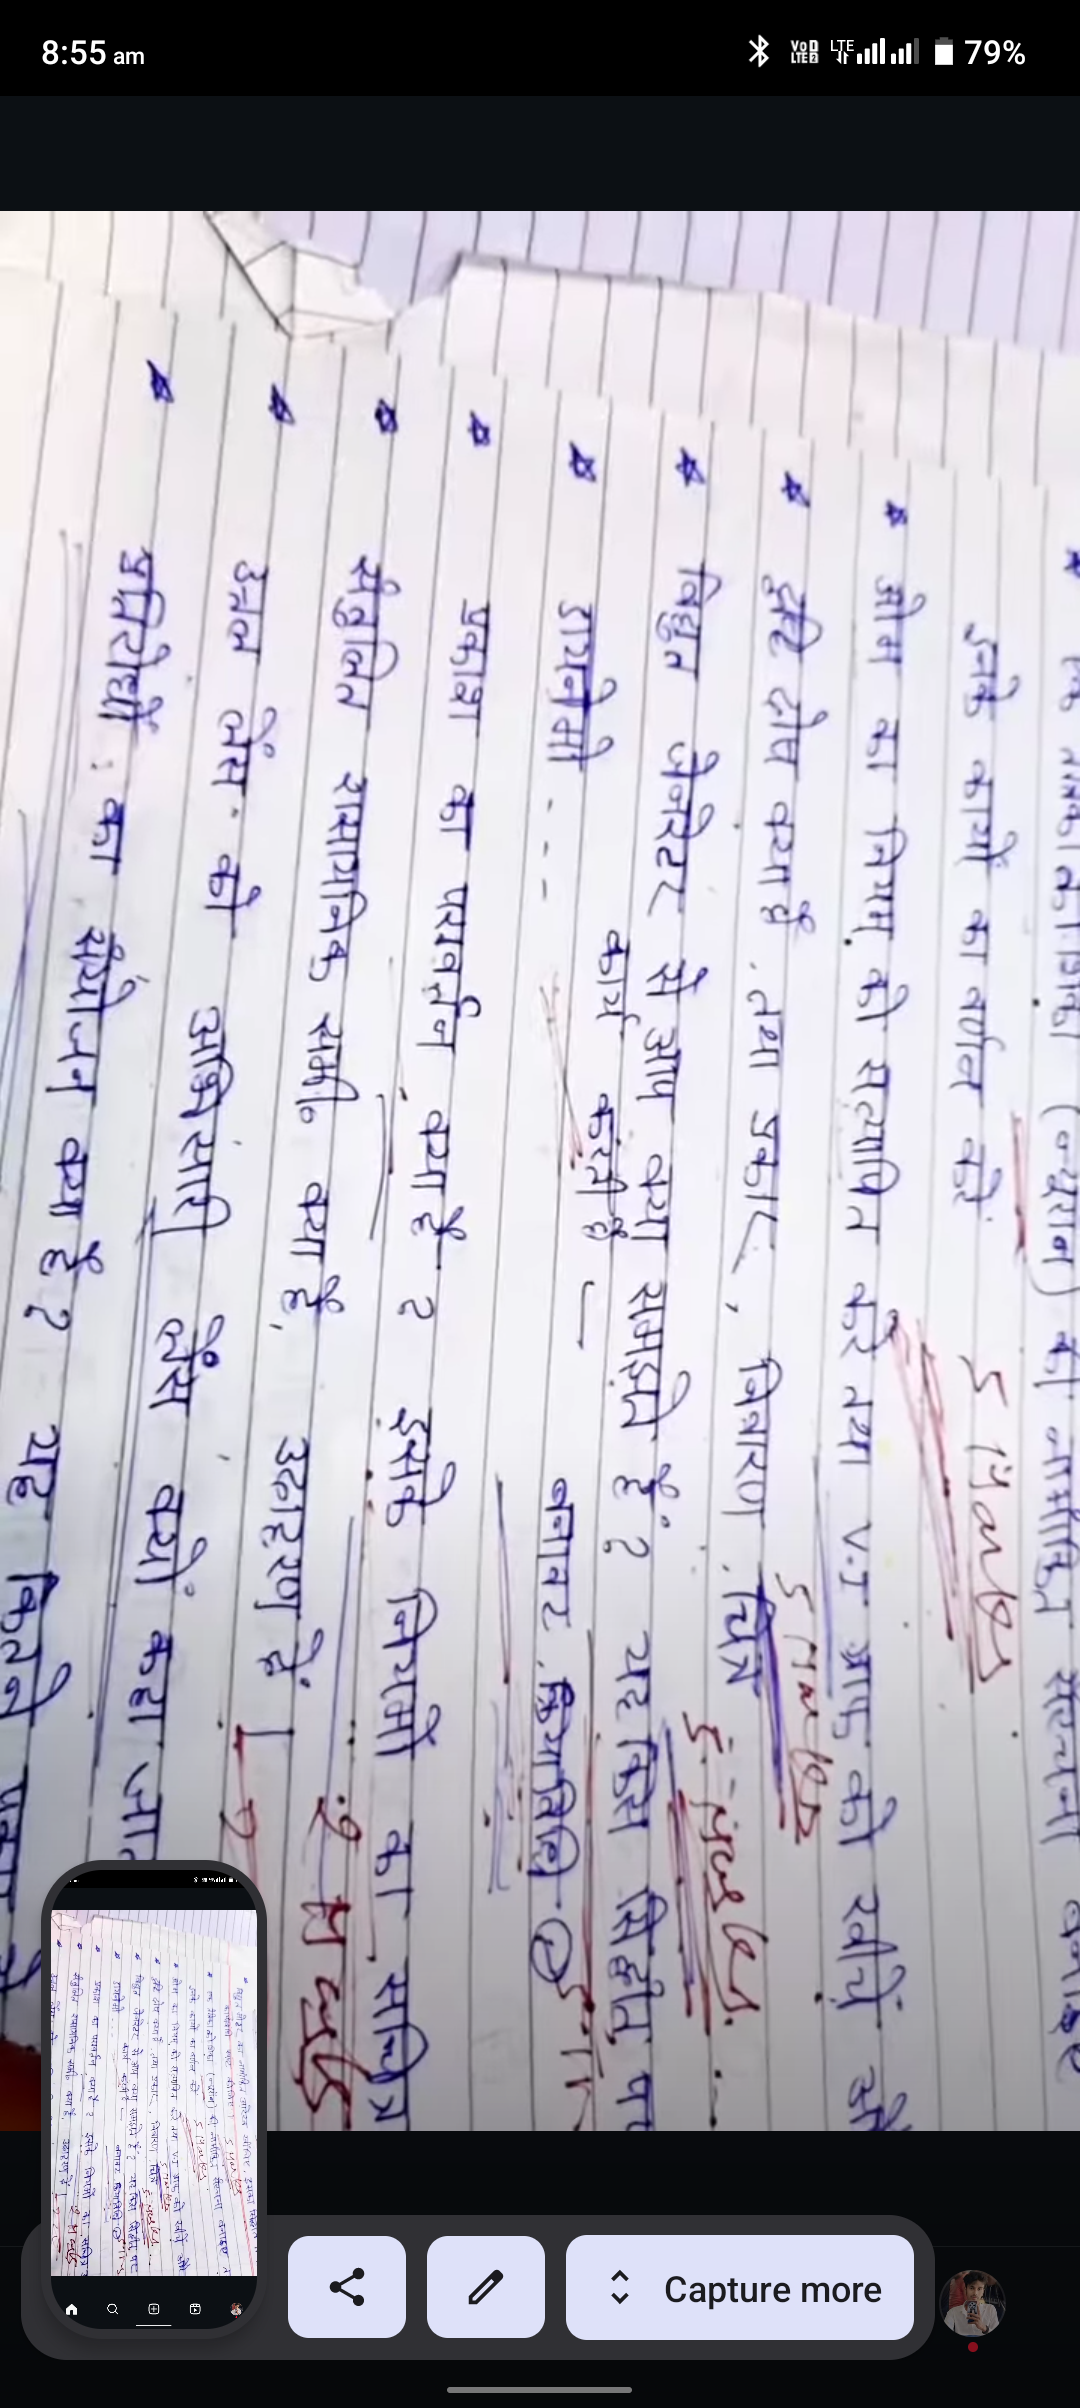 8:55 am
VoD LTE2 LTE 79%
* एक तंत्रिका कोशिका (न्यूरान) की नामांकित संरचना बनाइए
इनके कार्यो का वर्णन करे 5 Marks
* ओम का नियम को सत्यापित करे तथा V.I ग्राफ को खींचे
5 Marks
* दृष्टि दोष क्या है . तथा प्रकार , निवारण . चित्र 5 - Marks.
* विधुत जेनरेटर से आप क्या समझते हैं ? यह किस सिद्धांत पर
कार्य करती है
* डायनेमो - - - बनावट . क्रियाविधि 5 M
* प्रकाश का परावर्तन क्या है ? इसके नियमों का सचित्र
* संतुलित रासायनिक समी० क्या है, उदाहरण है । 2 Marks
* उत्तल लेंस को अभिसारी लेंस क्यों कहा जा
* प्रतिरोधों : का संयोजन क्या है ? यह कितने प्रकार के
Capture more